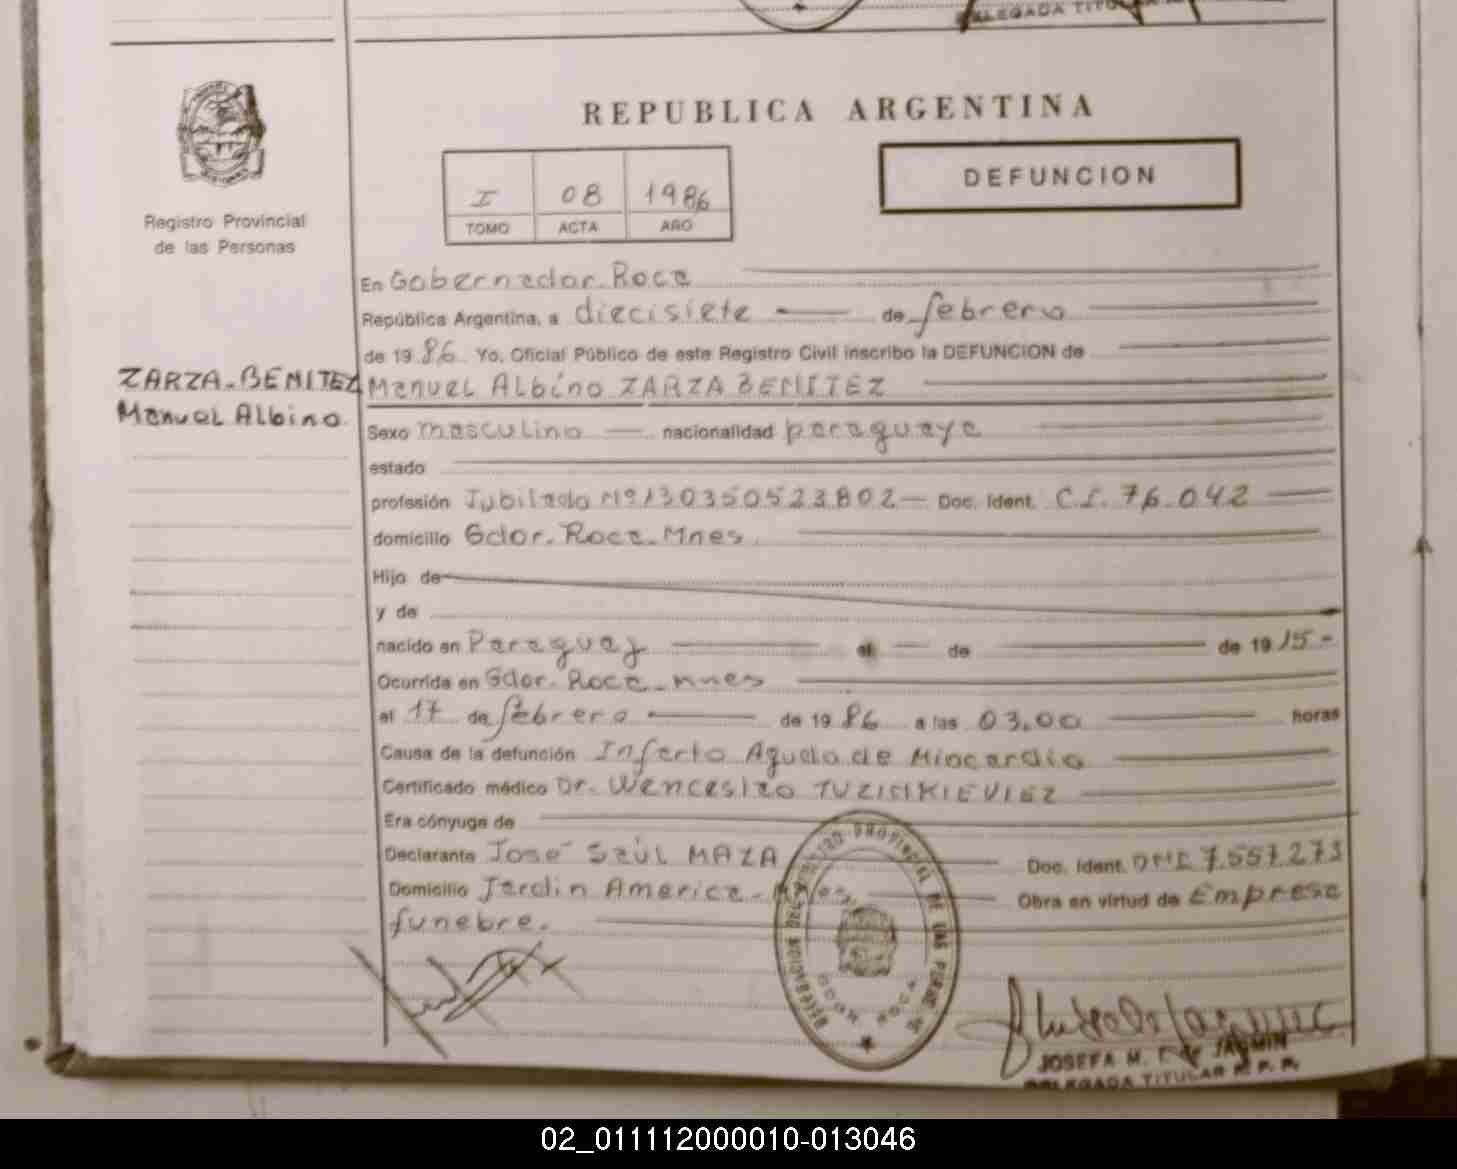 DELEGADA TITU
REPUBLICA ARGENTINA
I 08 1986
TOMO ACTA AÑO
DEFUNCION
Registro Provincial
de las Personas
En Gobernador Roca
República Argentina, a diecisiete de febrero
de 1986 Yo, Oficial Público de este Registro Civil inscribo la DEFUNCION de
ZARZA-BENITEZ
Manuel Albino
Manuel Albino ZARZA BENITEZ
Sexo masculino nacionalidad paraguaya
estado
profesión Jubilado Nº 130350523802 Doc. Ident. C.I. 76.042
domicilio Gdor. Roca-Mnes.
Hijo de
y de
nacido en Paraguay el de de 1915-
Ocurrida en Gdor. Roca-Mnes
el 17 de febrero de 1986 a las 03,00 horas
Causa de la defunción Infarto Agudo de Miocardio
Certificado médico Dr. Wenceslao
Era cónyuge de
Declarante José Szúl MAZA Doc. Ident. DNI 7.557.273
Domicilio Jardín America- Obra en virtud de Empresa
funebre.
DELEGACION DEL REGISTRO PROVINCIAL DE LAS PERSONAS
GDOR ROCA
JOSEFA M. F. de JASMIN
DELEGADA TITULAR R. P. P.
02_011112000010-013046